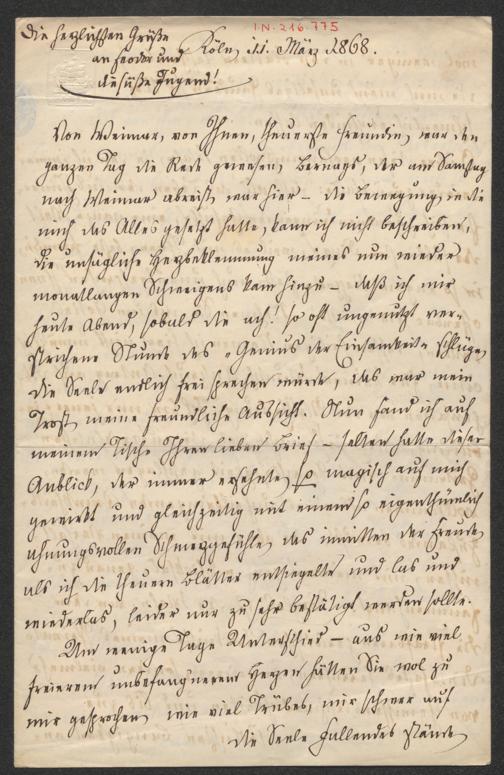 I.N. 216.775
Die herzlichsten Grüße
an Feodor und
die süße Jugend!
Köln, 11. März 1868.
Von Weimar, von Ihnen, theuerste Freundin, war den
ganzen Tag die Rede gewesen, Bernays, der am Samstag
nach Weimar abreist, war hier – die Bewegung, in die
mich das Alles gesetzt hatte, kann ich nicht beschreiben,
die unsägliche Herzbeklemmung meines nun wieder
monatlangen Schweigens kam hinzu – daß ich mir
heute Abend, sobald die ach! so oft ungenutzt ver-
strichene Stunde des „Genius der Einsamkeit" schlüge,
die Seele endlich frei sprechen würde, das war mein
Trost, meine freundliche Aussicht. Nun fand ich auf
meinem Tische Ihren lieben Brief – selten hatte dieser
Anblick, der immer ersehnte, so magisch auf mich
gewirkt und gleichzeitig mit einem so eigenthümlich
ahnungsvollen Schmerzgefühle, das inmitten der Freude,
als ich die theuern Blätter entsiegelte und las und
wiederlas, leider nur zu sehr bestätigt werden sollte.
Um wenige Tage Unterschied – aus wie viel
freierem unbefangnerem Herzen hätten Sie wol zu
mir gesprochen, wie viel Trübes, mir schwer auf
die Seele fallendes stände